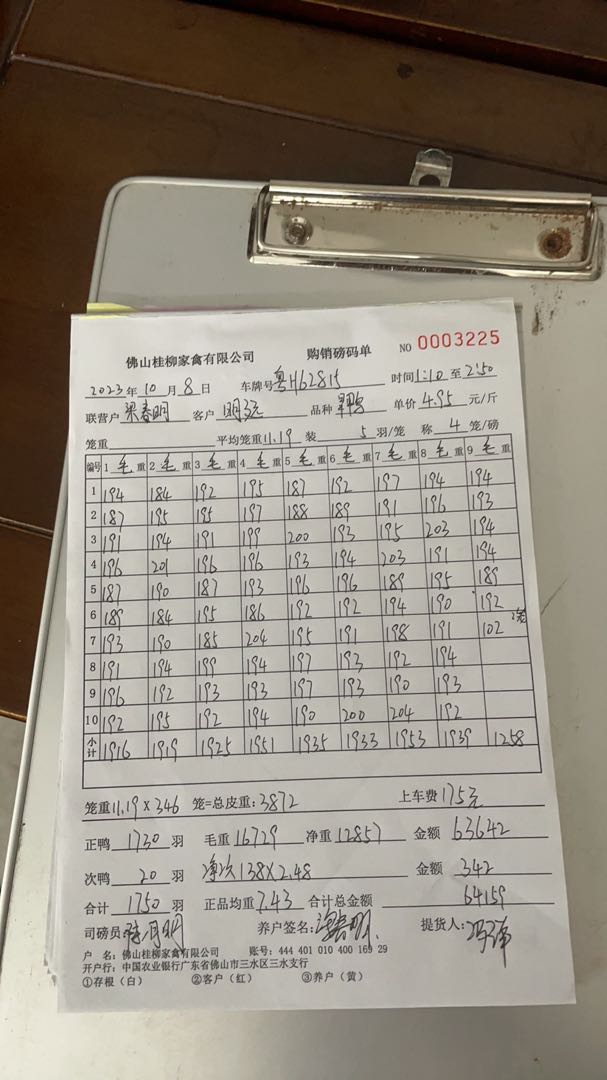 佛山桂柳家禽有限公司 购销磅码单 NO 0003225
2023年10月8日 车牌号粤H62815 时间1:10至2:50
联营户梁春明 客户 品种 单价4.95元/斤
笼重 平均笼重11.19 装5羽/笼 称4笼/磅
编号 1毛重 2毛重 3毛重 4毛重 5毛重 6毛重 7毛重 8毛重 9毛重
1 194 184 192 195 187 192 197 194 194
2 187 195 195 197 188 189 191 196 193
3 191 194 191 199 200 193 195 203 194
4 196 201 196 196 193 194 203 191 194
5 187 190 187 193 196 196 189 195 189
6 189 184 195 186 192 192 194 190 192
7 193 190 185 204 195 191 198 191 102 2笼
8 191 194 199 194 197 193 192 194
9 196 192 193 193 197 193 190 193
10 192 195 192 194 190 200 204 192
小计 1916 1919 1925 1951 1935 1933 1953 1939 1258
笼重11.19×346笼=总皮重:3872 上车费175元
正鸭1730羽 毛重16729 净重12857 金额63642
次鸭20羽 净次138×2.48 金额342
合计1750羽 正品均重7.43 合计总金额64159
司磅员: 养户签名: 提货人:
户 名:佛山桂柳家禽有限公司 账号:444 401 010 400 169 29
开户行:中国农业银行广东省佛山市三水区三水支行
①存根(白) ②客户(红) ③养户(黄)